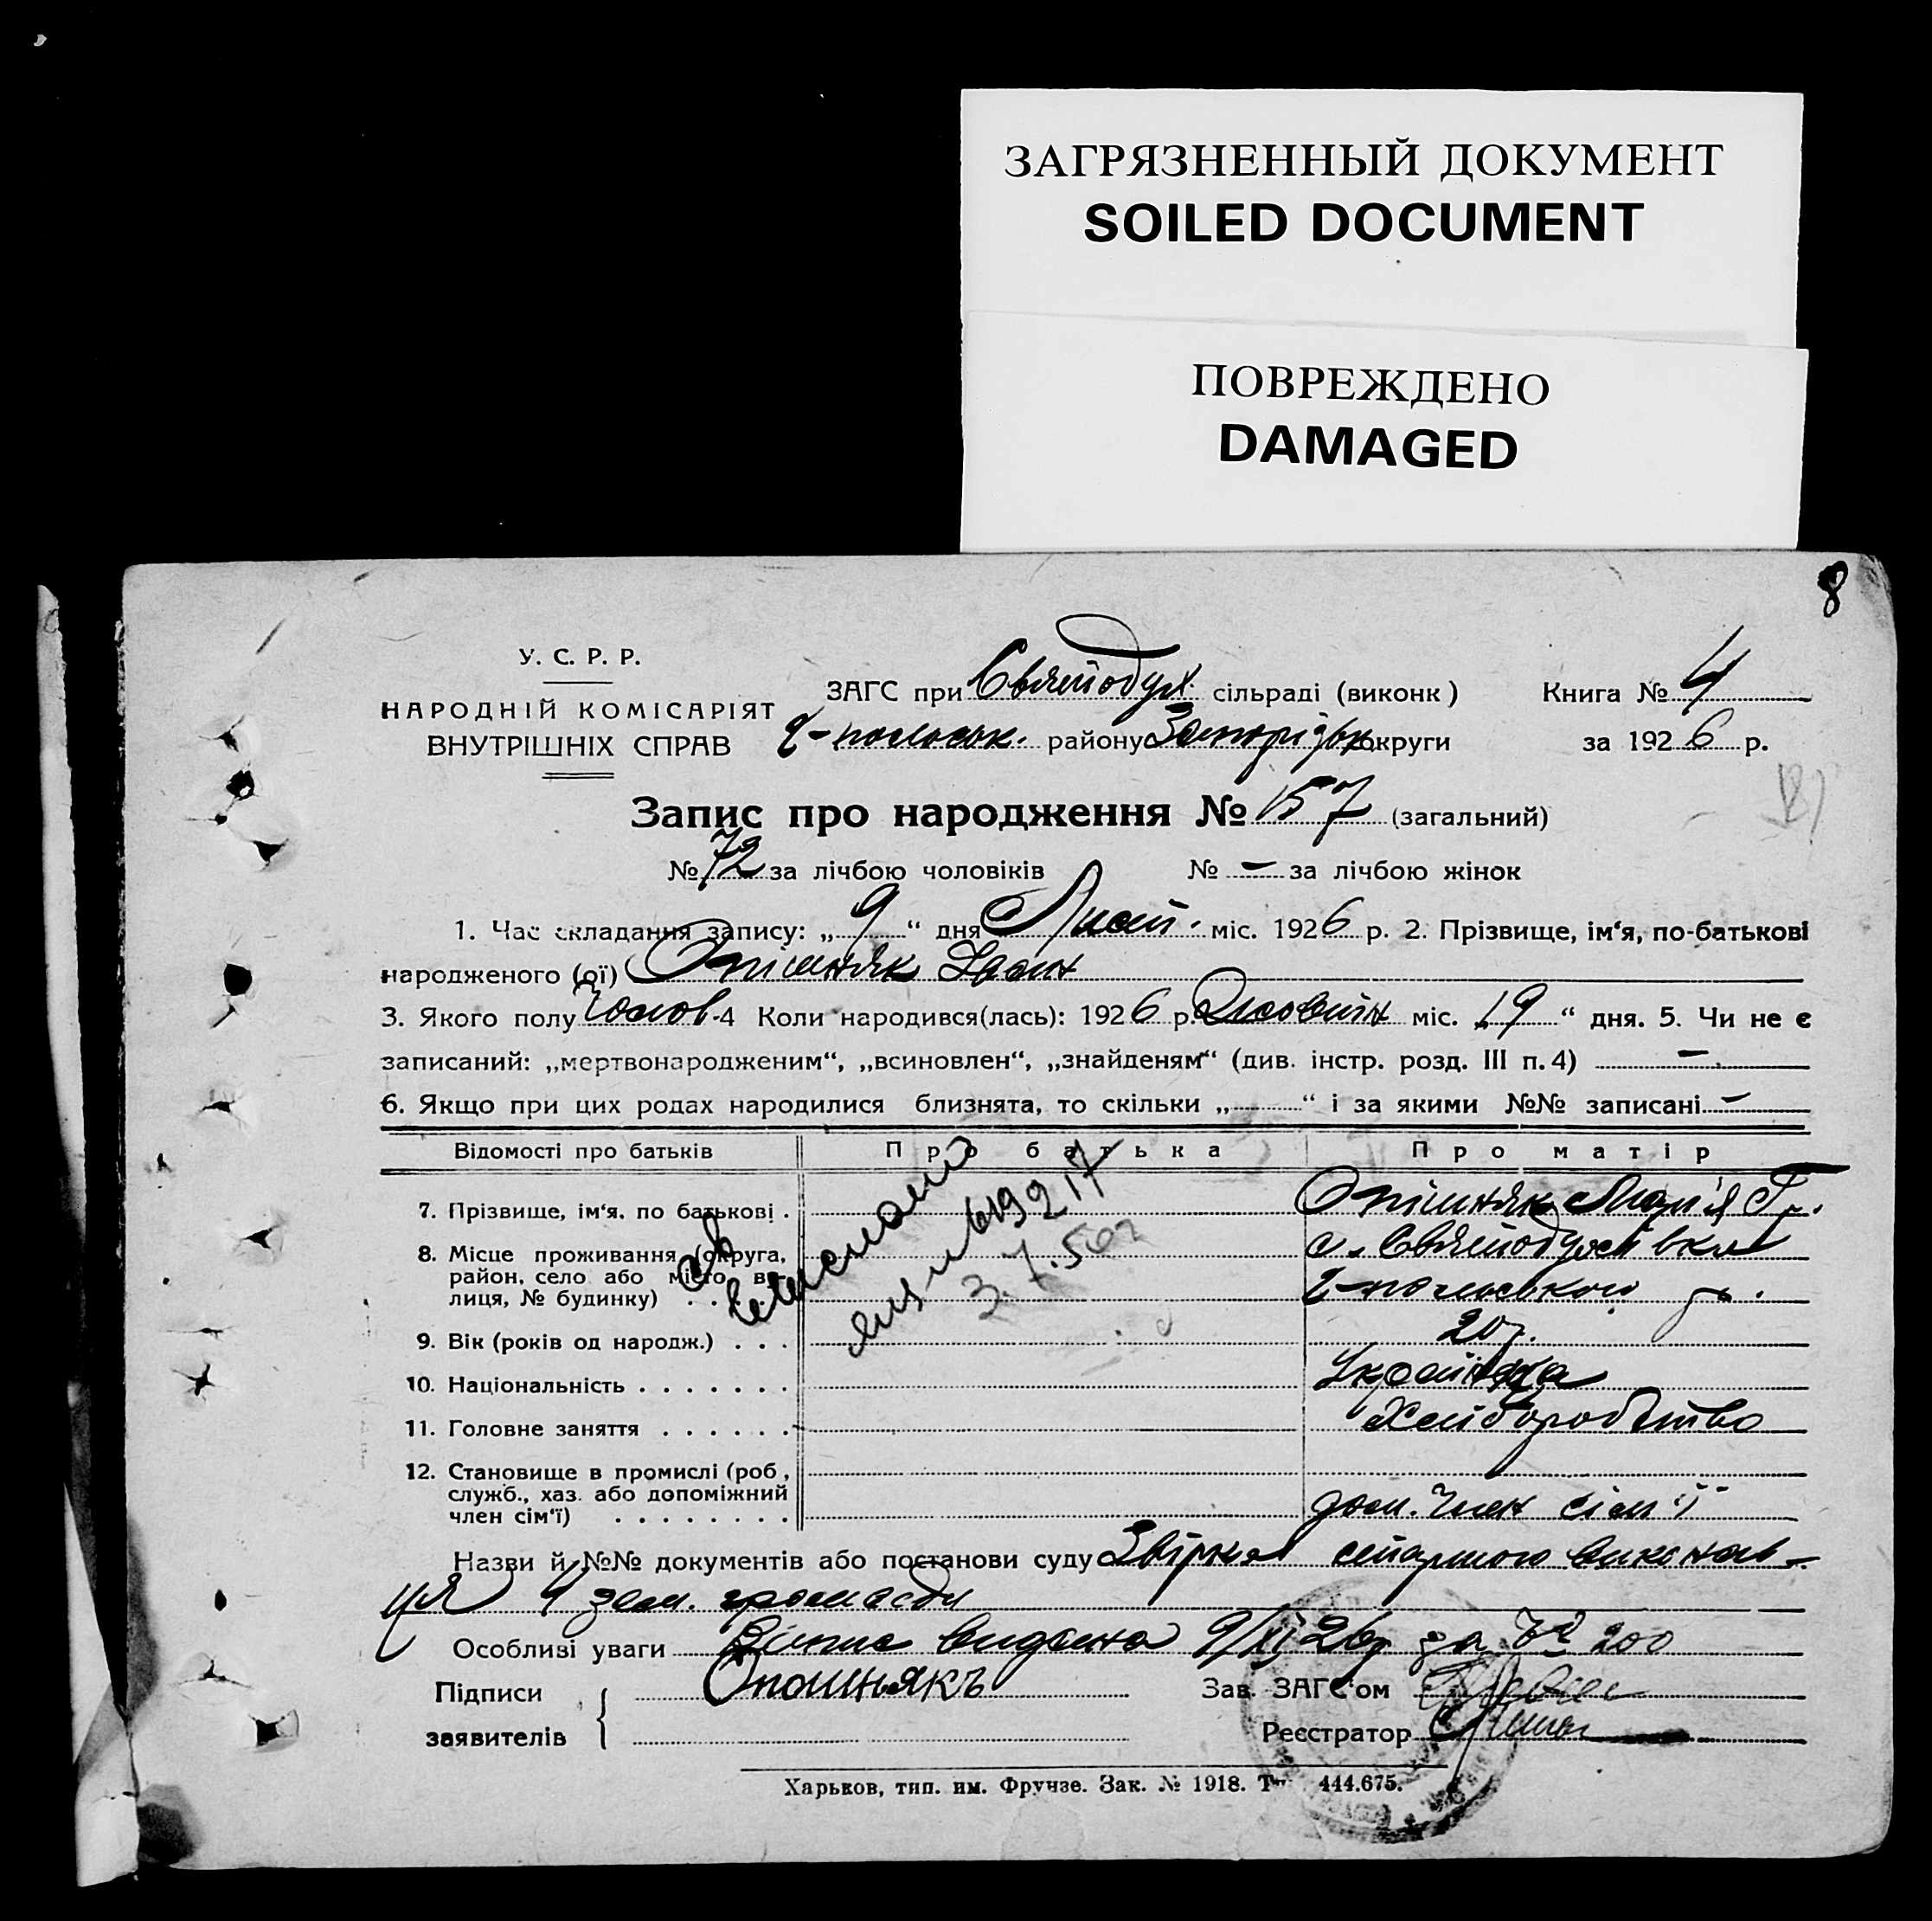 ЗАГРЯЗНЕННЫЙ ДОКУМЕНТ
SOILED DOCUMENT
ПОВРЕЖДЕНО
DAMAGED
8
У. С. Р. Р.
НАРОДНІЙ КОМІСАРІЯТ
ВНУТРІШНІХ СПРАВ
ЗАГС при Святодух. сільраді (виконк)
Книга № 4
г-польськ. району Запорізьк округи
за 1926 р.
Запис про народження № 157 (загальний)
№ 72 за лічбою чоловіків № – за лічбою жінок
1. Час складання запису: „ 9 “ дня Лист. міс. 1926 р. 2. Прізвище, ім‘я, по-батькові
народженого (ої) Опішняк Іван
3. Якого полу Чолов. 4 Коли народився(лась): 1926 р. Жовтня міс. „19 “ дня. 5. Чи не є
записаний: „мертвонародженим“, „всиновлен“, „знайденям“ (див. інстр. розд. III п. 4) –
6. Якщо при цих родах народилися близнята, то скільки „ “ і за якими №№ записані –
Відомості про батьків
Про батька
Про матір
7. Прізвище, ім‘я, по батькові . Опішняк Марія Гр.
8. Місце проживання (округа, с. Святодухівка
район, село або місто, ву-
лиця, № будинку) . . . г-польського р.
9. Вік (років од народж.) . . . 20 р.
10. Національність . . . . . . . Українка
11. Головне заняття . . . . . . Хліборобство
12. Становище в промислі (роб.,
служб., хаз. або допоміжний
член сім‘ї) . . . . . . . . доп. член сім'ї
619217
3.7.50г
Назви й №№ документів або постанови суду Звірка старшого виконав-
ця 4 зем. громади
Особливі уваги Випис видана 9/XI 26р за № 200
Підписи
заявителів
Опошнякъ
Зав. ЗАГС‘ом
Реєстратор
Харьков, тип. им. Фрунзе. Зак. № 1918. 444.675.